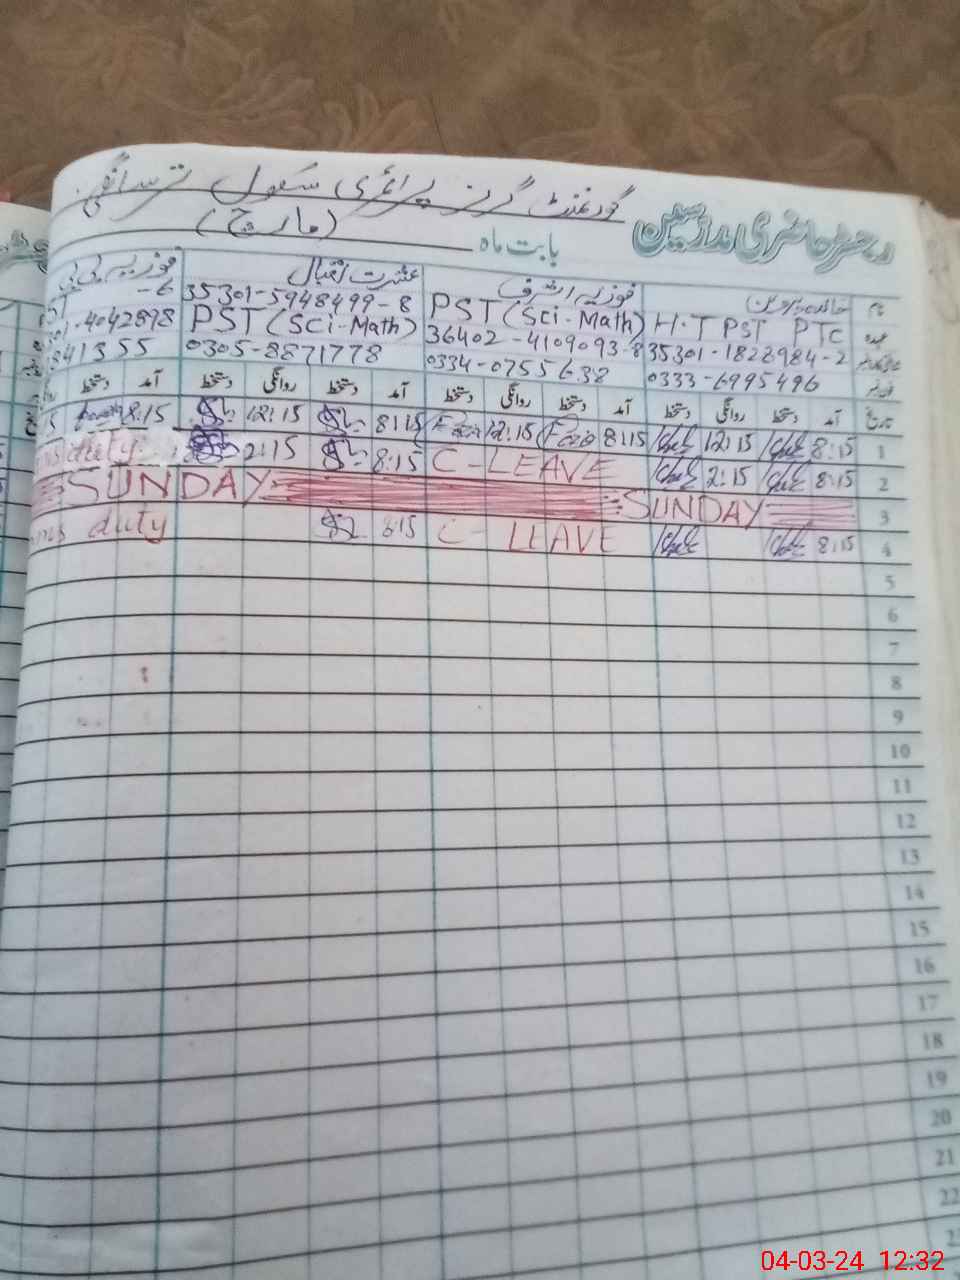 گورنمنٹ گرلز پرائمری سکول
رجسٹر حاضری مدرسین
بابت ماہ (مارچ)
نام خالدہ پروین فوزیہ اشرف عشرت اقبال فوزیہ بی بی
عہدہ H.T PST PTC PST (Sci-Math) 35301-5948499-8 -6
35301-1828984-2 36402-4109093-8 PST (Sci-Math) 01-4042898
0333-6995496 0334-0755638 0305-8871778 841355
تاریخ آمد دستخط روانگی دستخط آمد دستخط روانگی دستخط آمد دستخط روانگی دستخط آمد دستخط
1 8:15 12:15 8:15 Fozia 12:15 Fozia 8:15 12:15 8:15
2 8:15 2:15 C-LEAVE 8:15 2:15 duty
3 SUNDAY SUNDAY
4 8:15 C-LEAVE 8:15 duty
5
6
7
8
9
10
11
12
13
14
15
16
17
18
19
20
21
22
04-03-24 12:32